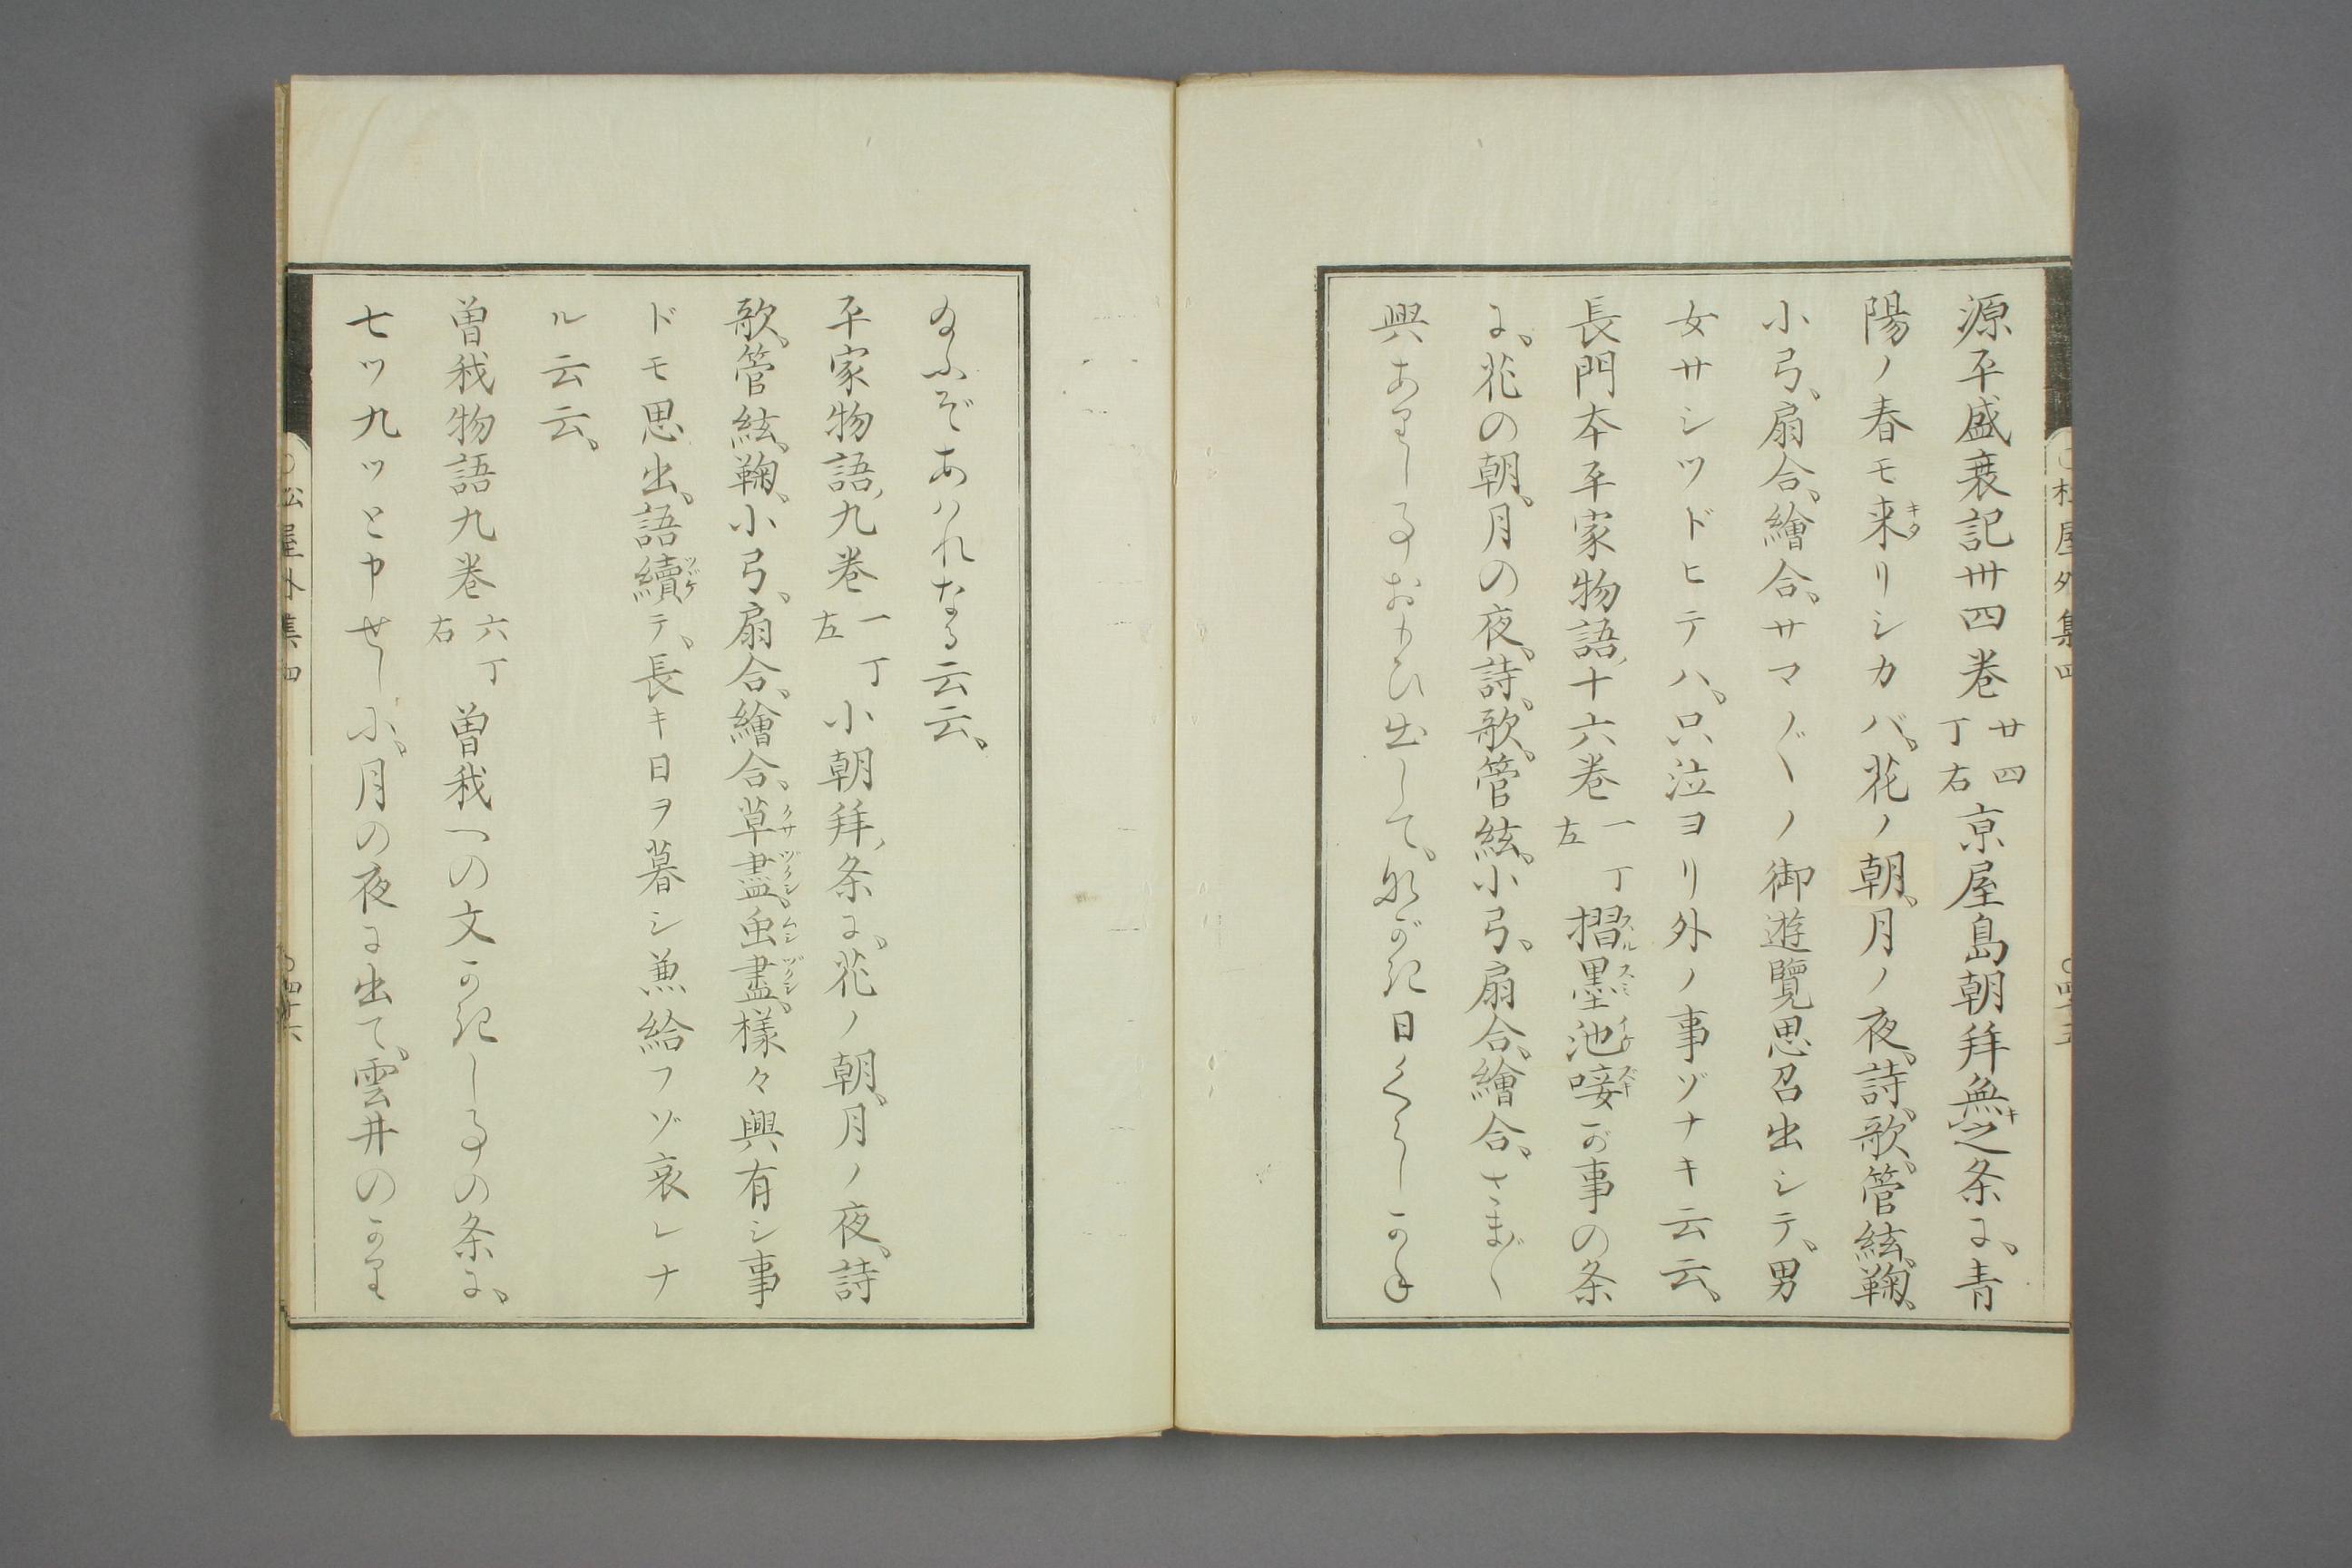 源平盛衰記卅四巻廿四丁右京屋島朝拜無之条に、青
陽ノ春モ来リシカバ、花ノ朝、月ノ夜、詩、歌、管絃、鞠、
小弓、扇合、繪合、サマ〴〵ノ御遊覽思召出シテ、男
女サシツドヒテハ、只泣ヨリ外ノ事ゾナキ云云、
長門本平家物語、十六巻一丁左摺墨池唼が事の条
に、花の朝、月の夜、詩、歌、管絃、小弓、扇合、繪合、さま〴〵
興ありし事おもひ出して、ながき日くらしかね
給ふぞあはれなる云云、
平家物語、九巻一丁左小朝拜、条に、花ノ朝、月ノ夜、詩
歌、管絃、鞠、小弓、扇合、繪合、草盡、虫盡、様々興有シ事
ドモ思出、語續テ、長キ日ヲ暮シ兼給フゾ哀レナ
ル云云、
曽我物語九巻六丁右曽我への文かきし事の条に、
七ツ九ツと申せしに、月の夜に出て、雲井のかり
松屋外集四